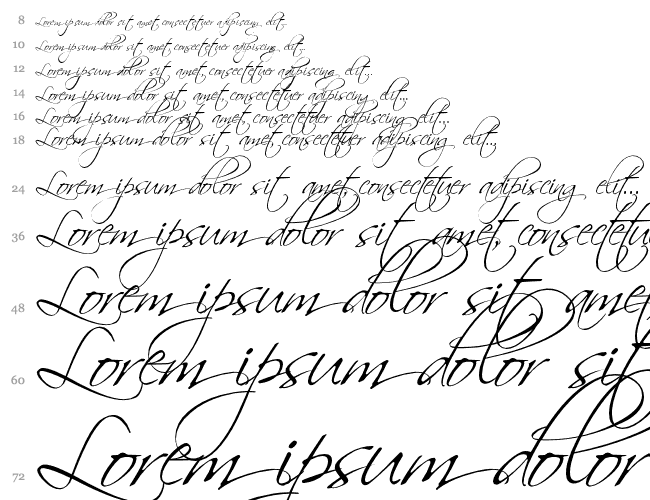 8 Lorem ipsum dolor sit amet, consectetuer adipiscing elit...
10 Lorem ipsum dolor sit amet, consectetuer adipiscing elit...
12 Lorem ipsum dolor sit amet, consectetuer adipiscing elit...
14 Lorem ipsum dolor sit amet, consectetuer adipiscing elit...
16 Lorem ipsum dolor sit amet, consectetuer adipiscing elit...
18 Lorem ipsum dolor sit amet, consectetuer adipiscing elit...
24 Lorem ipsum dolor sit amet, consectetuer adipiscing elit...
36 Lorem ipsum dolor sit amet, consectetu
48 Lorem ipsum dolor sit, ame
60 Lorem ipsum dolor sit
72 Lorem ipsum dolor